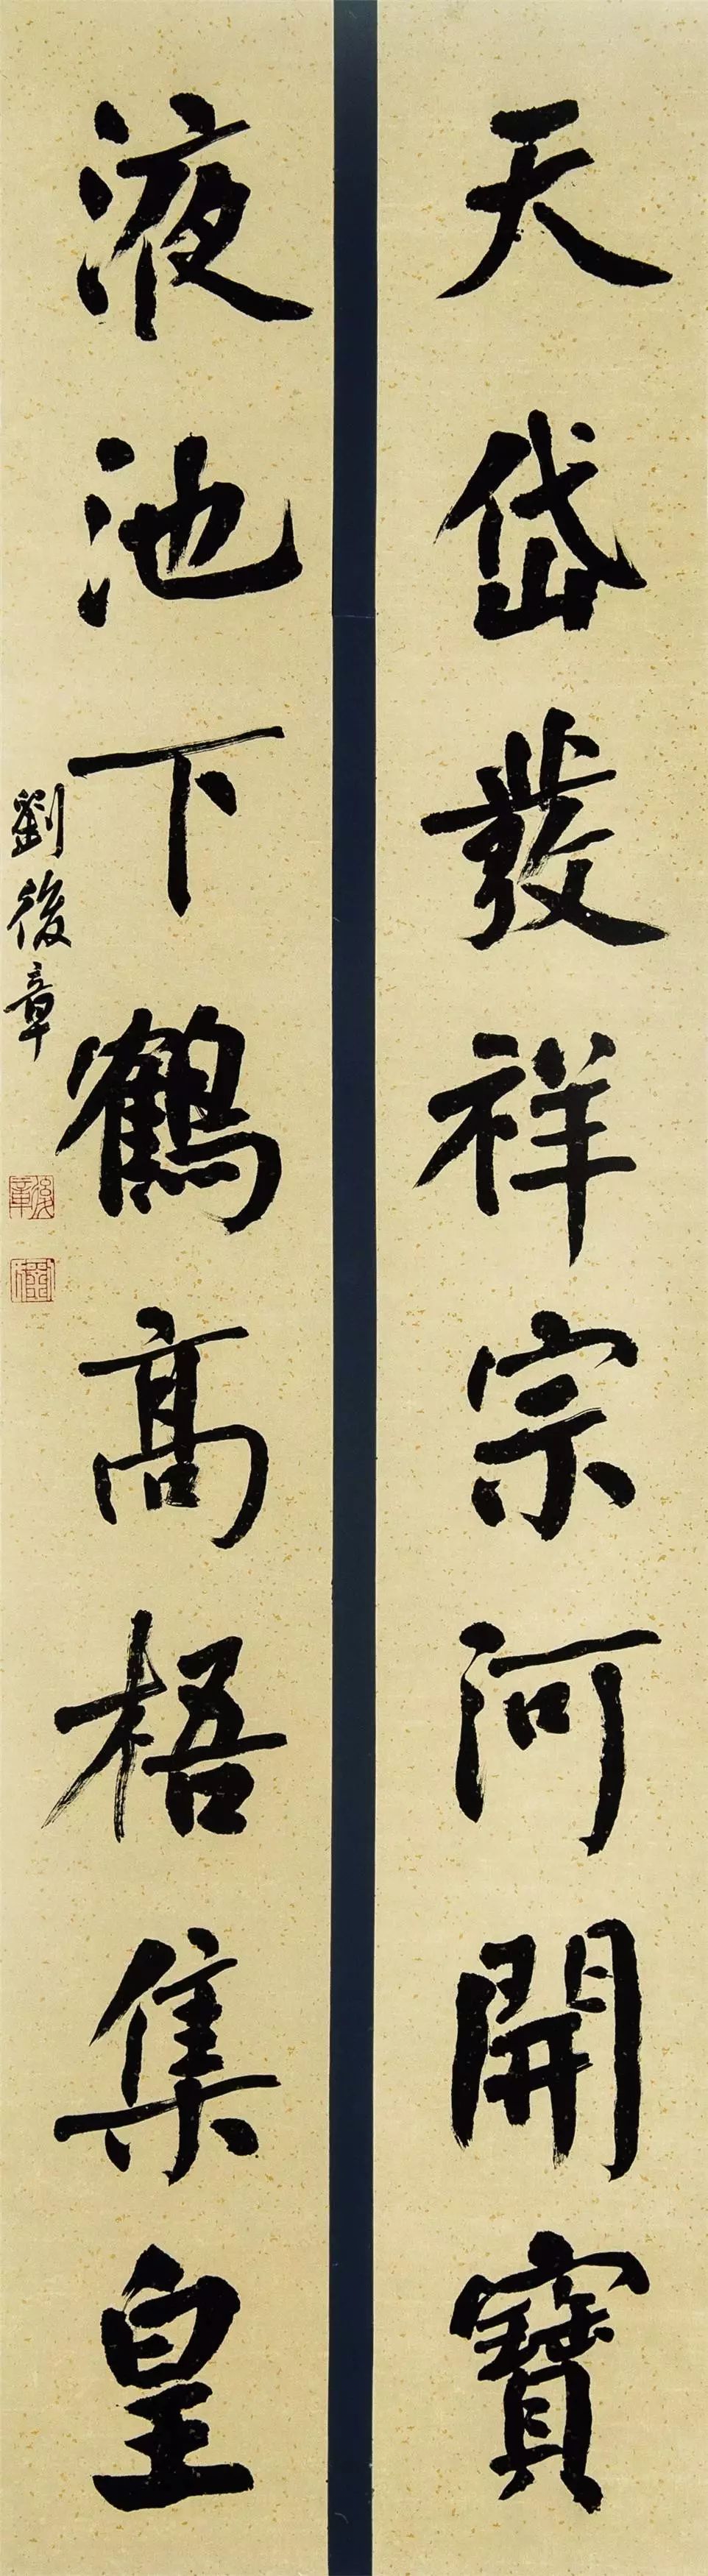 天岱發祥宗河開寶
液池下鶴高梧集皇
劉後章
後章